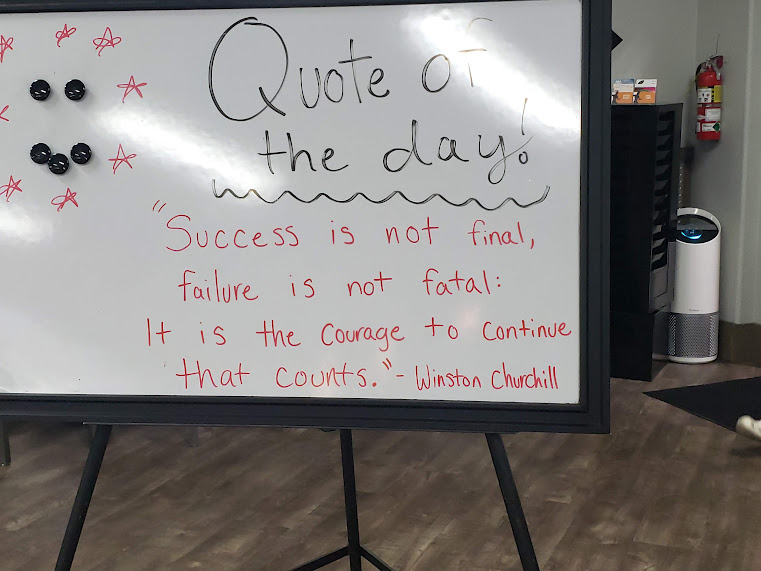 Quote of
the day!
"Success is not final,
failure is not fatal:
It is the courage to continue
that counts." - Winston Churchill